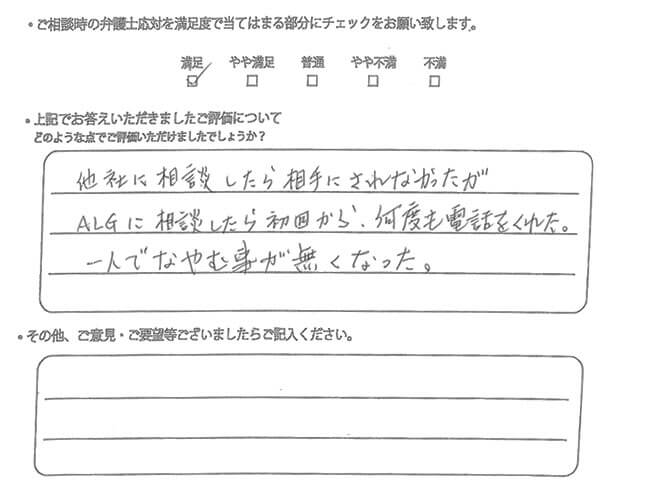 ・ご相談時の弁護士応対を満足度で当てはまる部分にチェックをお願い致します。
満足 やや満足 普通 やや不満 不満
・上記でお答えいただきましたご評価について
どのような点でご評価いただけましたでしょうか?
他社に相談したら相手にされなかったが
ALGに相談したら初回から、何度も電話をくれた。
一人でなやむ事が無くなった。
・その他、ご意見・ご要望等ございましたらご記入ください。